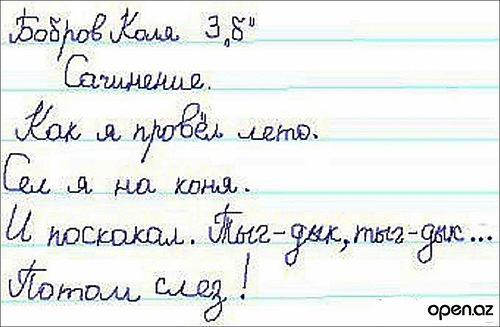 Бобров Коля 3 „б"
Сачинение.
Как я провёл лето.
Сел я на коня.
И поскакал. Тыг-дык, тыг-дык...
Потом слез!
open.az